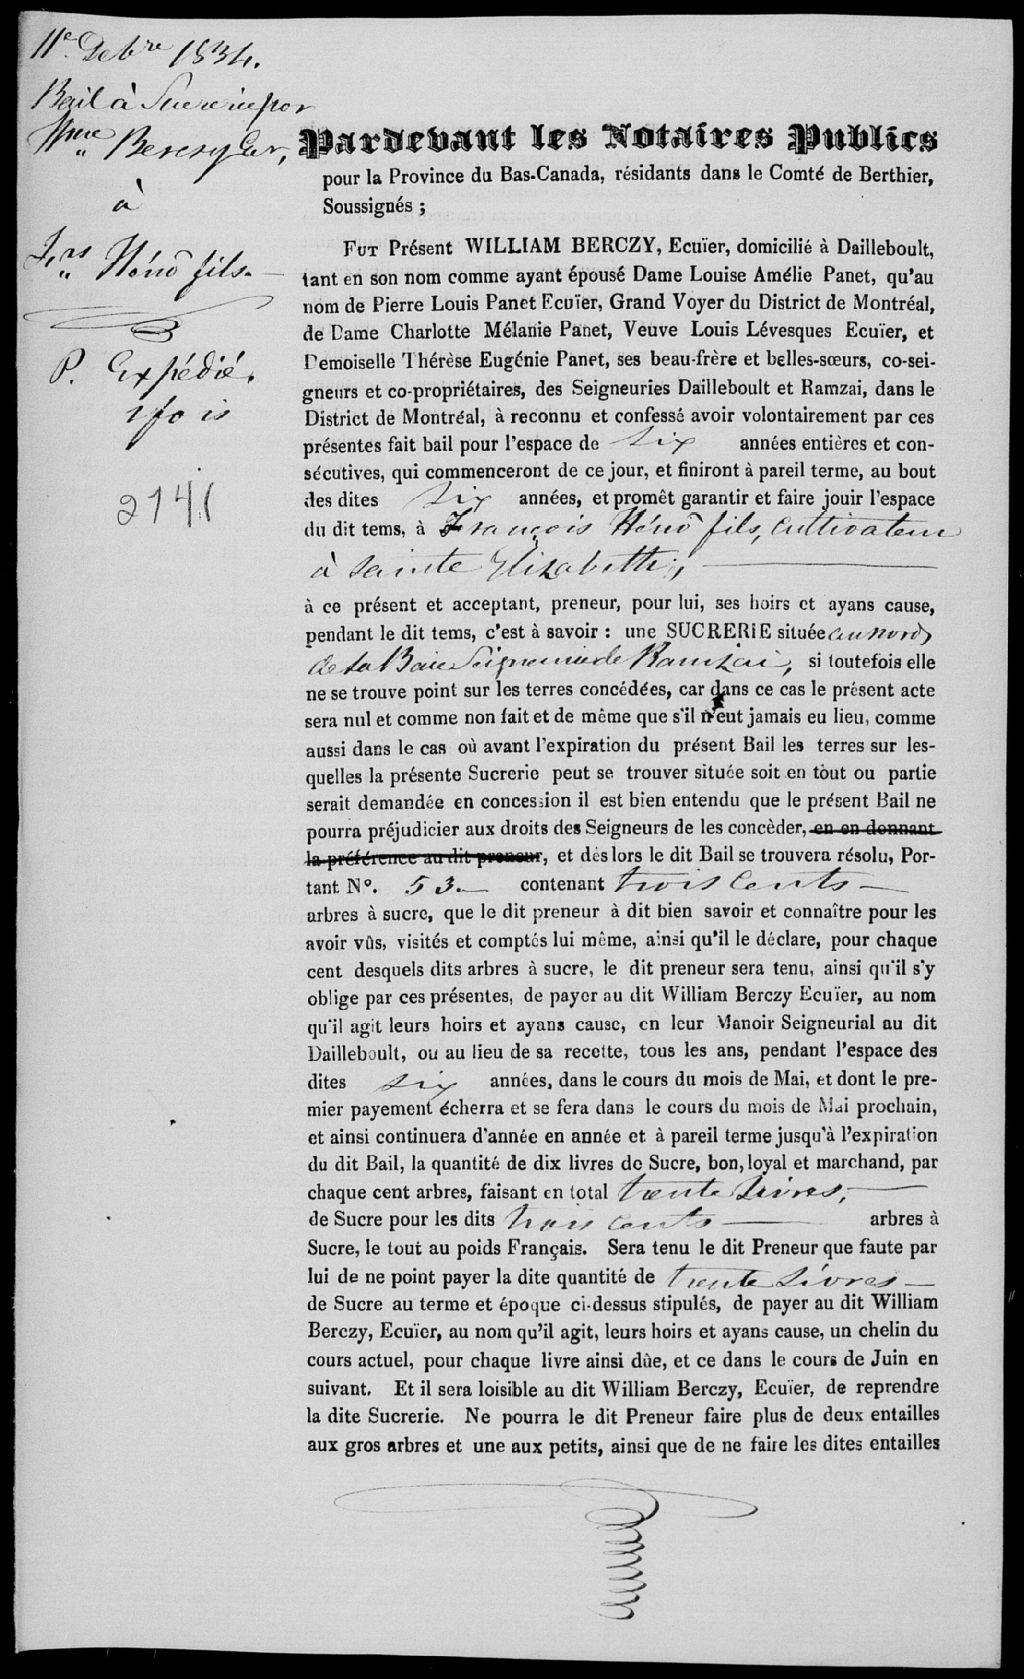 11e. Debre 1834.
Bail à Sucrerie par
Wme Berczy Ecr,
à
Frs Hénô fils.
P. Expédié.
1 fois
2141
Pardevant les Notaires Publics
pour la Province du Bas-Canada, résidants dans le Comté de Berthier,
Soussignés ;
FUT Présent WILLIAM BERCZY, Ecuïer, domicilié à Dailleboult,
tant en son nom comme ayant épousé Dame Louise Amélie Panet, qu'au
nom de Pierre Louis Panet Ecuïer, Grand Voyer du District de Montréal,
de Dame Charlotte Mélanie Panet, Veuve Louis Lévesques Ecuïer, et
Demoiselle Thérèse Eugénie Panet, ses beau-frère et belles-sœurs, co-sei-
gneurs et co-propriétaires, des Seigneuries Dailleboult et Ramzai, dans le
District de Montréal, à reconnu et confessé avoir volontairement par ces
présentes fait bail pour l'espace de six années entières et con-
sécutives, qui commenceront de ce jour, et finiront à pareil terme, au bout
des dites six années, et promêt garantir et faire jouir l'espace
du dit tems, à François Hénô fils, cultivateur
à Sainte Elizabeth;,
à ce présent et acceptant, preneur, pour lui, ses hoirs et ayans cause,
pendant le dit tems, c'est à savoir : une SUCRERIE située au nord
de la Baie Seigneurie de Ramzai, si toutefois elle
ne se trouve point sur les terres concédées, car dans ce cas le présent acte
sera nul et comme non fait et de même que s'il n'eut jamais eu lieu, comme
aussi dans le cas où avant l'expiration du présent Bail les terres sur les-
quelles la présente Sucrerie peut se trouver située soit en tout ou partie
serait demandée en concession il est bien entendu que le présent Bail ne
pourra préjudicier aux droits des Seigneurs de les concèder, en en donnant
la préférence au dit preneur, et dès lors le dit Bail se trouvera résolu, Por-
tant N°. 53. contenant trois cents
arbres à sucre, que le dit preneur à dit bien savoir et connaître pour les
avoir vûs, visités et comptés lui même, ainsi qu'il le déclare, pour chaque
cent desquels dits arbres à sucre, le dit preneur sera tenu, ainsi qu'il s'y
oblige par ces présentes, de payer au dit William Berczy Ecuïer, au nom
qu'il agit leurs hoirs et ayans cause, en leur Manoir Seigneurial au dit
Dailleboult, ou au lieu de sa recette, tous les ans, pendant l'espace des
dites six années, dans le cours du mois de Mai, et dont le pre-
mier payement écherra et se fera dans le cours du mois de Mai prochain,
et ainsi continuera d'année en année et à pareil terme jusqu'à l'expiration
du dit Bail, la quantité de dix livres de Sucre, bon, loyal et marchand, par
chaque cent arbres, faisant en total trente Livres,
de Sucre pour les dits trois cents arbres à
Sucre, le tout au poids Français. Sera tenu le dit Preneur que faute par
lui de ne point payer la dite quantité de trente Livres
de Sucre au terme et époque ci-dessus stipulés, de payer au dit William
Berczy, Ecuïer, au nom qu'il agit, leurs hoirs et ayans cause, un chelin du
cours actuel, pour chaque livre ainsi dûe, et ce dans le cours de Juin en
suivant. Et il sera loisible au dit William Berczy, Ecuïer, de reprendre
la dite Sucrerie. Ne pourra le dit Preneur faire plus de deux entailles
aux gros arbres et une aux petits, ainsi que de ne faire les dites entailles